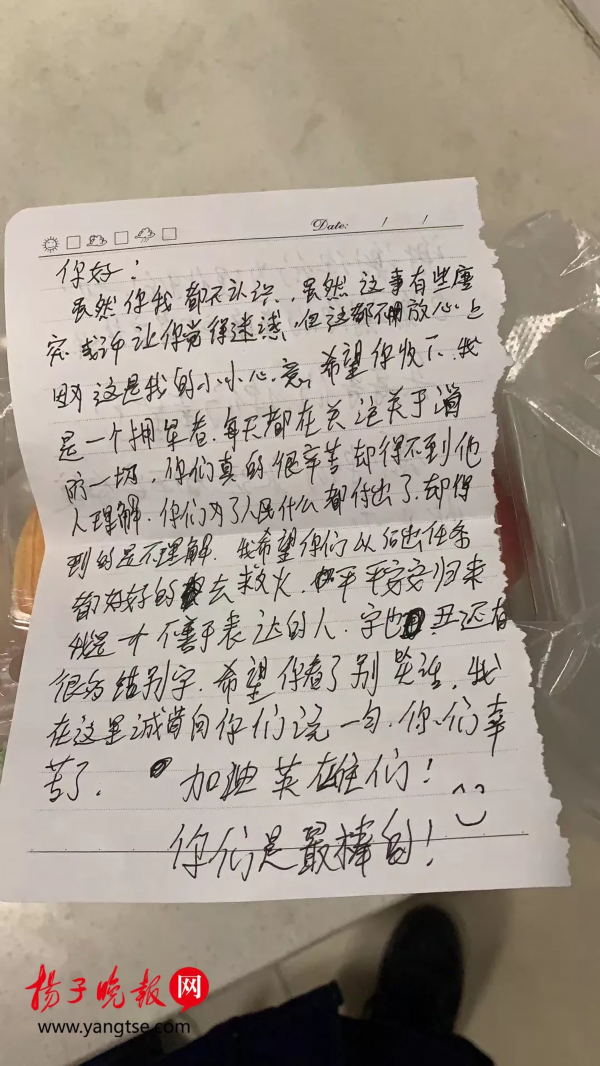 Date: / /
你好：
虽然你我都不认识，虽然这事有些唐
突，或许让你觉得迷惑，但这都不用放心上
因为这是我的小小心意，希望你收下，我
是一个拥军者，每天都在关注关于消
防一切，你们真的很辛苦却得不到他
人理解，你们为了人民什么都付出了，却得
到的是不理解，我希望你们以后出任务
都好好的去救火，平平安安归来
我是个不善于表达的人，字也丑还有
很多错别字，希望你看了别笑话，我
在这里诚首向你们说一句，你们辛
苦了，
加油英雄们！
你们是最棒的！
扬子晚报网
www.yangtse.com